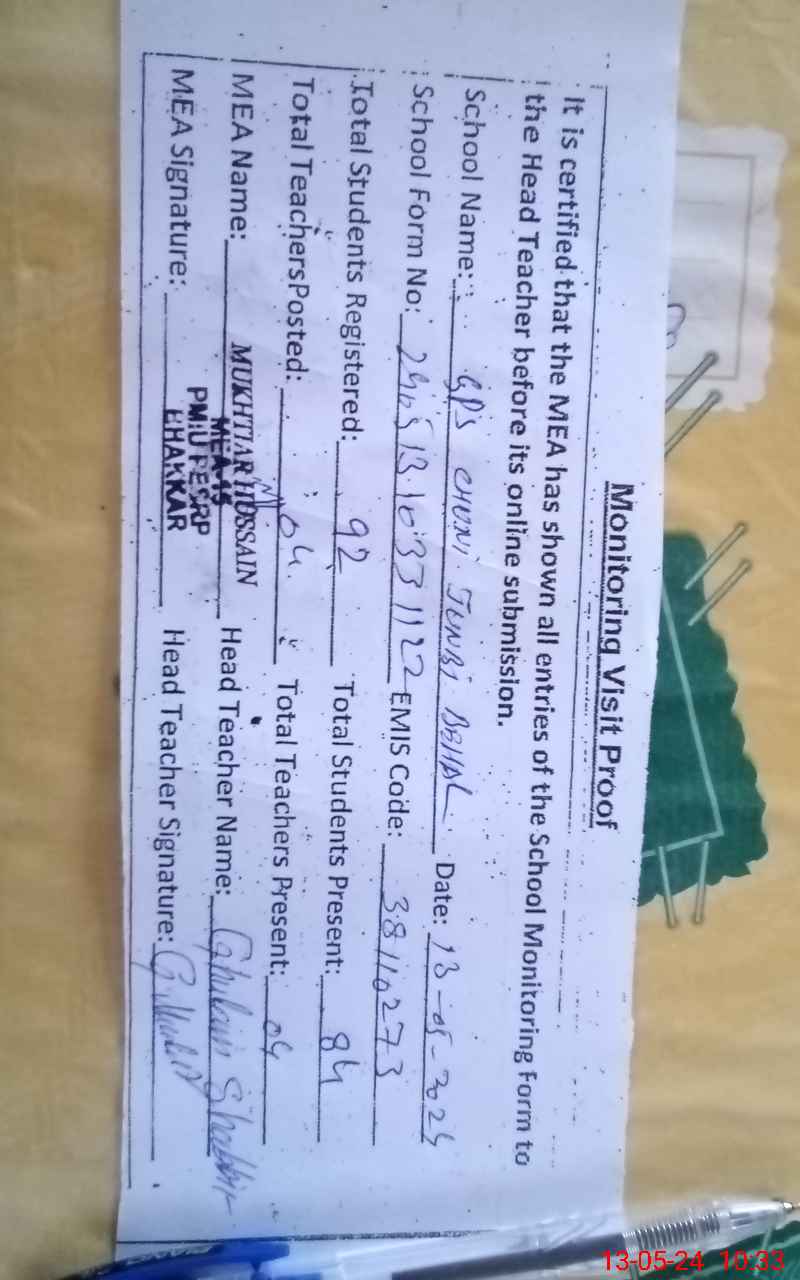 Monitoring Visit Proof
It is certified that the MEA has shown all entries of the School Monitoring Form to
the Head Teacher before its online submission.
School Name: GPS CHUNI JUNBI BBHAL Date: 13-05-2024
School Form No: EMIS Code: 38110273
Total Students Registered: 92 Total Students Present: 84
Total TeachersPosted: 04 Total Teachers Present: 04
MEA Name: MUKHTIAR HUSSAIN Head Teacher Name: Ghulam Shabbir
MEA-15
MEA Signature: PMIU PESRP Head Teacher Signature:
BHAKKAR
13-05-24 10:33